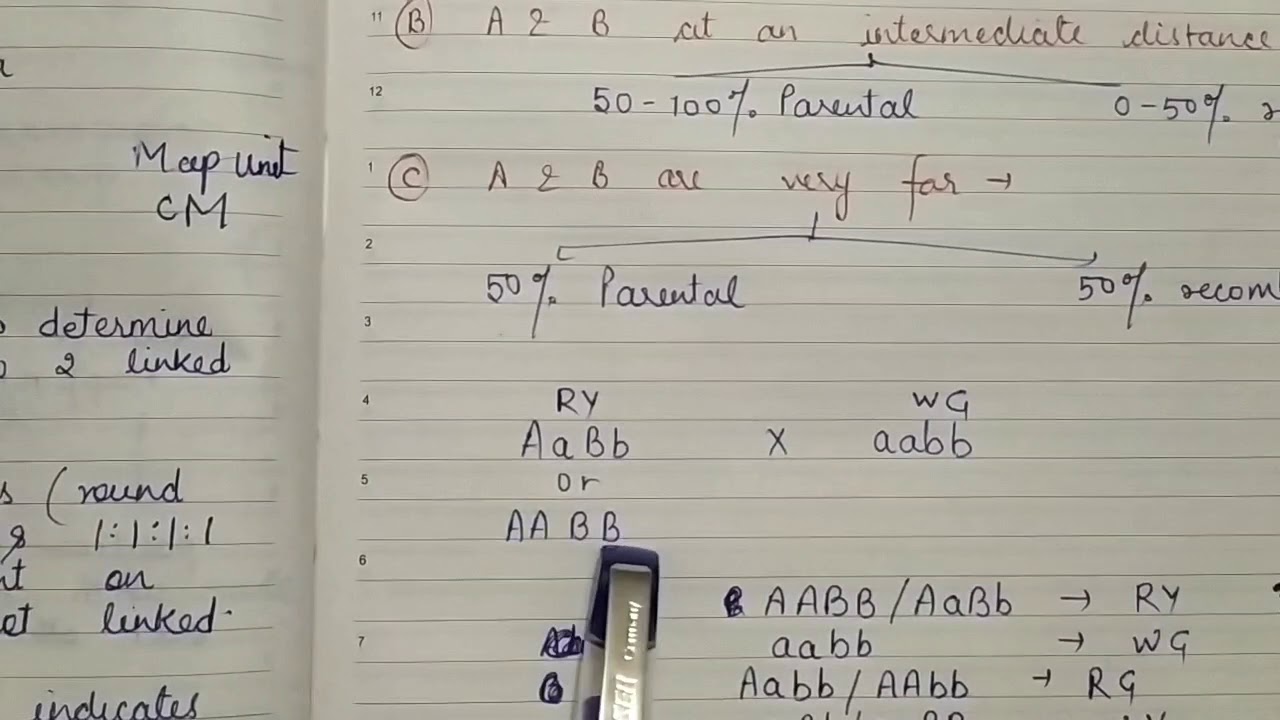 Map Unit
CM
determine
2 linked
(round
1:1:1:1
an
linked.
indicates
11 (B) A & B at an intermediate distance
12 50-100% Parental 0-50%
1 (C) A & B are very far →
2
50% Parental 50% recom
3
4 RY WG
AaBb X aabb
5 or
AA BB
6
AABB/AaBb → RY
7 aabb → WG
Aabb/AAbb → RG